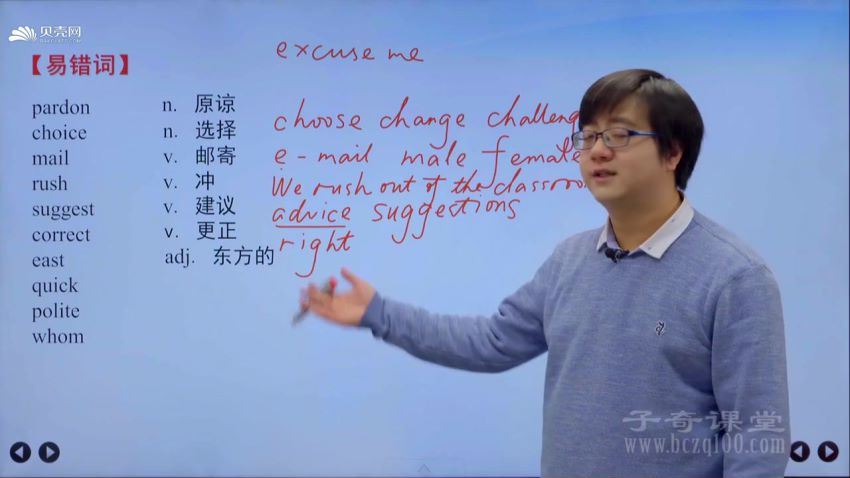 贝壳网
excuse me
【易错词】
pardon n. 原谅
choice n. 选择 choose change challeng
mail v. 邮寄 e-mail male female
rush v. 冲 We rush out of the classroo
suggest v. 建议 advice suggestions
correct v. 更正 right
east adj. 东方的
quick
polite
whom
子奇课堂
www.bczq100.com